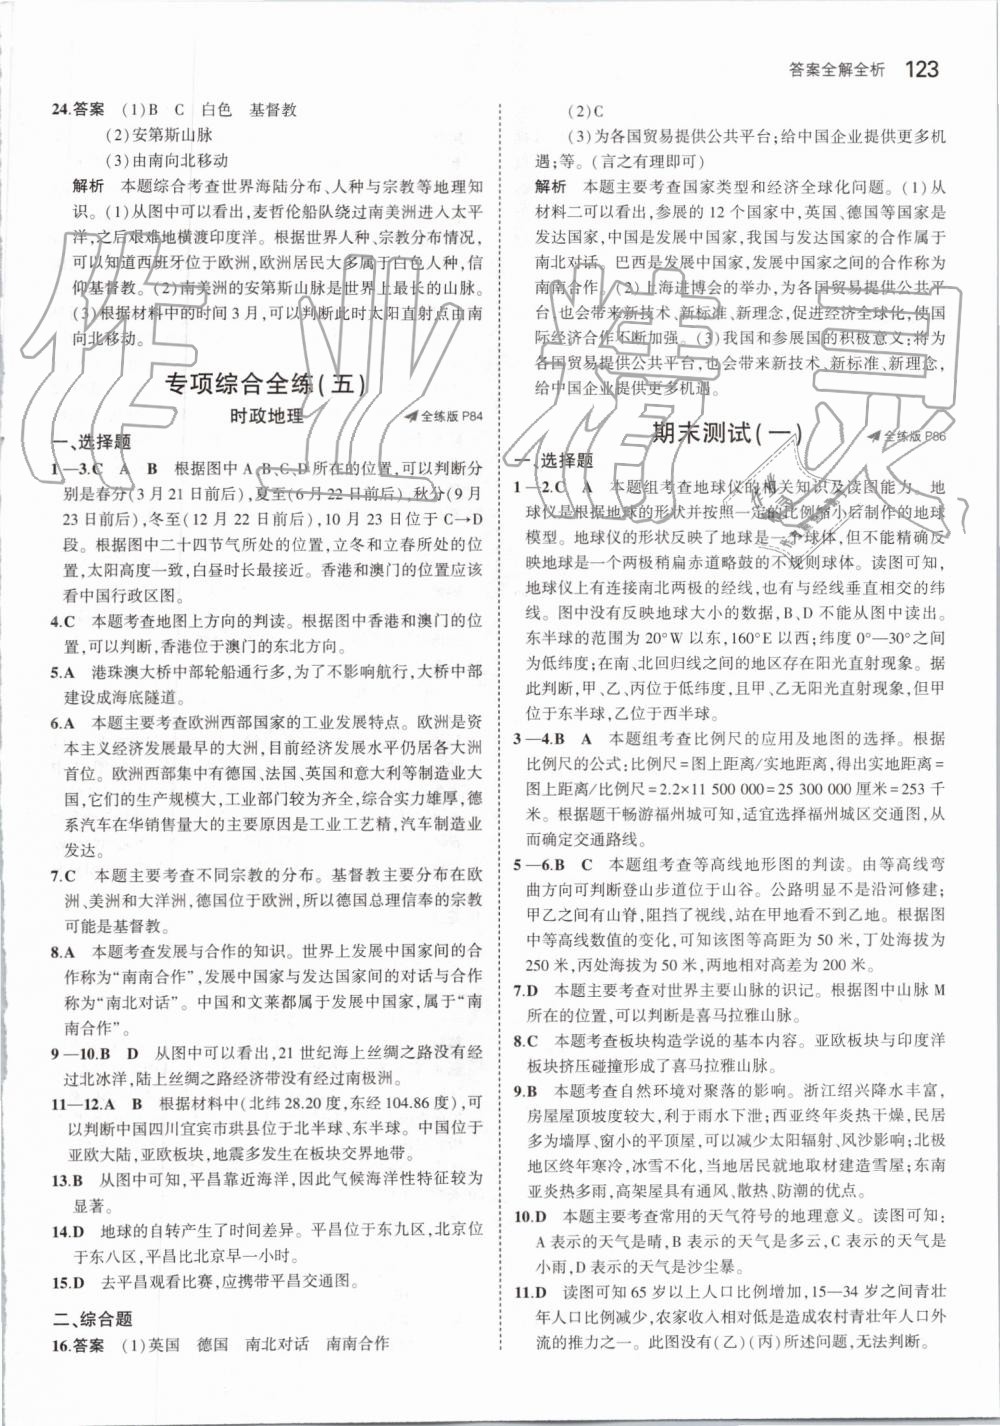 答案全解全析 123
24.答案 (1)B C 白色 基督教
(2)安第斯山脉
(3)由南向北移动
解析 本题综合考查世界海陆分布、人种与宗教等地理知
识。(1)从图中可以看出,麦哲伦船队绕过南美洲进入太平
洋,之后艰难地横渡印度洋。根据世界人种、宗教分布情况,
可以知道西班牙位于欧洲,欧洲居民大多属于白色人种,信
仰基督教。(2)南美洲的安第斯山脉是世界上最长的山脉。
(3)根据材料中的时间3月,可以判断此时太阳直射点由南
向北移动。
专项综合全练(五)
时政地理 全练版 P84
一、选择题
1—3.C A B 根据图中A、B、C、D所在的位置,可以判断分
别是春分(3月21日前后),夏至(6月22日前后),秋分(9月
23日前后),冬至(12月22日前后),10月23日位于C→D
段。根据图中二十四节气所处的位置,立冬和立春所处的位
置,太阳高度一致,白昼时长最接近。香港和澳门的位置应该
看中国行政区图。
4.C 本题考查地图上方向的判读。根据图中香港和澳门的位
置,可以判断,香港位于澳门的东北方向。
5.A 港珠澳大桥中部轮船通行多,为了不影响航行,大桥中部
建设成海底隧道。
6.A 本题主要考查欧洲西部国家的工业发展特点。欧洲是资
本主义经济发展最早的大洲,目前经济发展水平仍居各大洲
首位。欧洲西部集中有德国、法国、英国和意大利等制造业大
国,它们的生产规模大,工业部门较为齐全,综合实力雄厚,德
系汽车在华销售量大的主要原因是工业工艺精,汽车制造业
发达。
7.C 本题主要考查不同宗教的分布。基督教主要分布在欧
洲、美洲和大洋洲,德国位于欧洲,所以德国总理信奉的宗教
可能是基督教。
8.A 本题考查发展与合作的知识。世界上发展中国家间的合
作称为“南南合作”,发展中国家与发达国家间的对话与合作
称为“南北对话”。中国和文莱都属于发展中国家,属于“南
南合作”。
9—10.B D 从图中可以看出,21世纪海上丝绸之路没有经
过北冰洋,陆上丝绸之路经济带没有经过南极洲。
11—12.A B 根据材料中(北纬28.20度,东经104.86度),可
以判断中国四川宜宾市珙县位于北半球、东半球。中国位于
亚欧大陆,亚欧板块,地震多发生在板块交界地带。
13.B 从图中可知,平昌靠近海洋,因此气候海洋性特征较为
显著。
14.D 地球的自转产生了时间差异。平昌位于东九区,北京位
于东八区,平昌比北京早一小时。
15.D 去平昌观看比赛,应携带平昌交通图。
二、综合题
16.答案 (1)英国 德国 南北对话 南南合作
(2)C
(3)为各国贸易提供公共平台;给中国企业提供更多机
遇;等。(言之有理即可)
解析 本题主要考查国家类型和经济全球化问题。(1)从
材料二可以看出,参展的12个国家中,英国、德国等国家是
发达国家,中国是发展中国家,我国与发达国家的合作属于
南北对话。巴西是发展中国家,发展中国家之间的合作称为
南南合作。(2)上海进博会的举办,为各国贸易提供公共平
台,也会带来新技术、新标准、新理念,促进经济全球化,使国
际经济合作不断加强。(3)我国和参展国的积极意义;将为
各国贸易提供公共平台,也会带来新技术、新标准、新理念,
给中国企业提供更多机遇。
期末测试(一) 全练版 P86
一、选择题
1—2.C A 本题组考查地球仪的相关知识及读图能力。地
球仪是根据地球的形状并按照一定的比例缩小后制作的地球
模型。地球仪的形状反映了地球是一个球体,但不能精确反
映地球是一个两极稍扁赤道略鼓的不规则球体。读图可知,
地球仪上有连接南北两极的经线,也有与经线垂直相交的纬
线。图中没有反映地球大小的数据,B、D不能从图中读出。
东半球的范围为20°W以东,160°E以西;纬度0°—30°之间
为低纬度;在南、北回归线之间的地区存在阳光直射现象。据
此判断,甲、乙、丙位于低纬度,且甲、乙无阳光直射现象,但甲
位于东半球,乙位于西半球。
3—4.B A 本题组考查比例尺的应用及地图的选择。根据
比例尺的公式:比例尺=图上距离/实地距离,得出实地距离=
图上距离/比例尺=2.2×11 500 000=25 300 000厘米=253千
米。根据题干畅游福州城可知,适宜选择福州城区交通图,从
而确定交通路线。
5—6.B C 本题组考查等高线地形图的判读。由等高线弯
曲方向可判断登山步道位于山谷。公路明显不是沿河修建;
甲乙之间有山脊,阻挡了视线,站在甲地看不到乙地。根据图
中等高线数值的变化,可知该图等高距为50米,丁处海拔为
250米,丙处海拔为50米,两地相对高差为200米。
7.D 本题主要考查对世界主要山脉的识记。根据图中山脉M
所在的位置,可以判断是喜马拉雅山脉。
8.C 本题考查板块构造学说的基本内容。亚欧板块与印度洋
板块挤压碰撞形成了喜马拉雅山脉。
9.B 本题考查自然环境对聚落的影响。浙江绍兴降水丰富,
房屋屋顶坡度较大,利于雨水下泄;西亚终年炎热干燥,民居
多为墙厚、窗小的平顶屋,可以减少太阳辐射、风沙影响;北极
地区终年寒冷,冰雪不化,当地居民就地取材建造雪屋;东南
亚炎热多雨,高架屋具有通风、散热、防潮的优点。
10.D 本题主要考查常用的天气符号的地理意义。读图可知:
A表示的天气是晴,B表示的天气是多云,C表示的天气是
小雨,D表示的天气是沙尘暴。
11.D 读图可知65岁以上人口比例增加,15—34岁之间青壮
年人口比例减少,农家收入相对降低是造成农村青壮年人口外
流的推力之一。图中没有(乙)(丙)所述问题,无法判断。